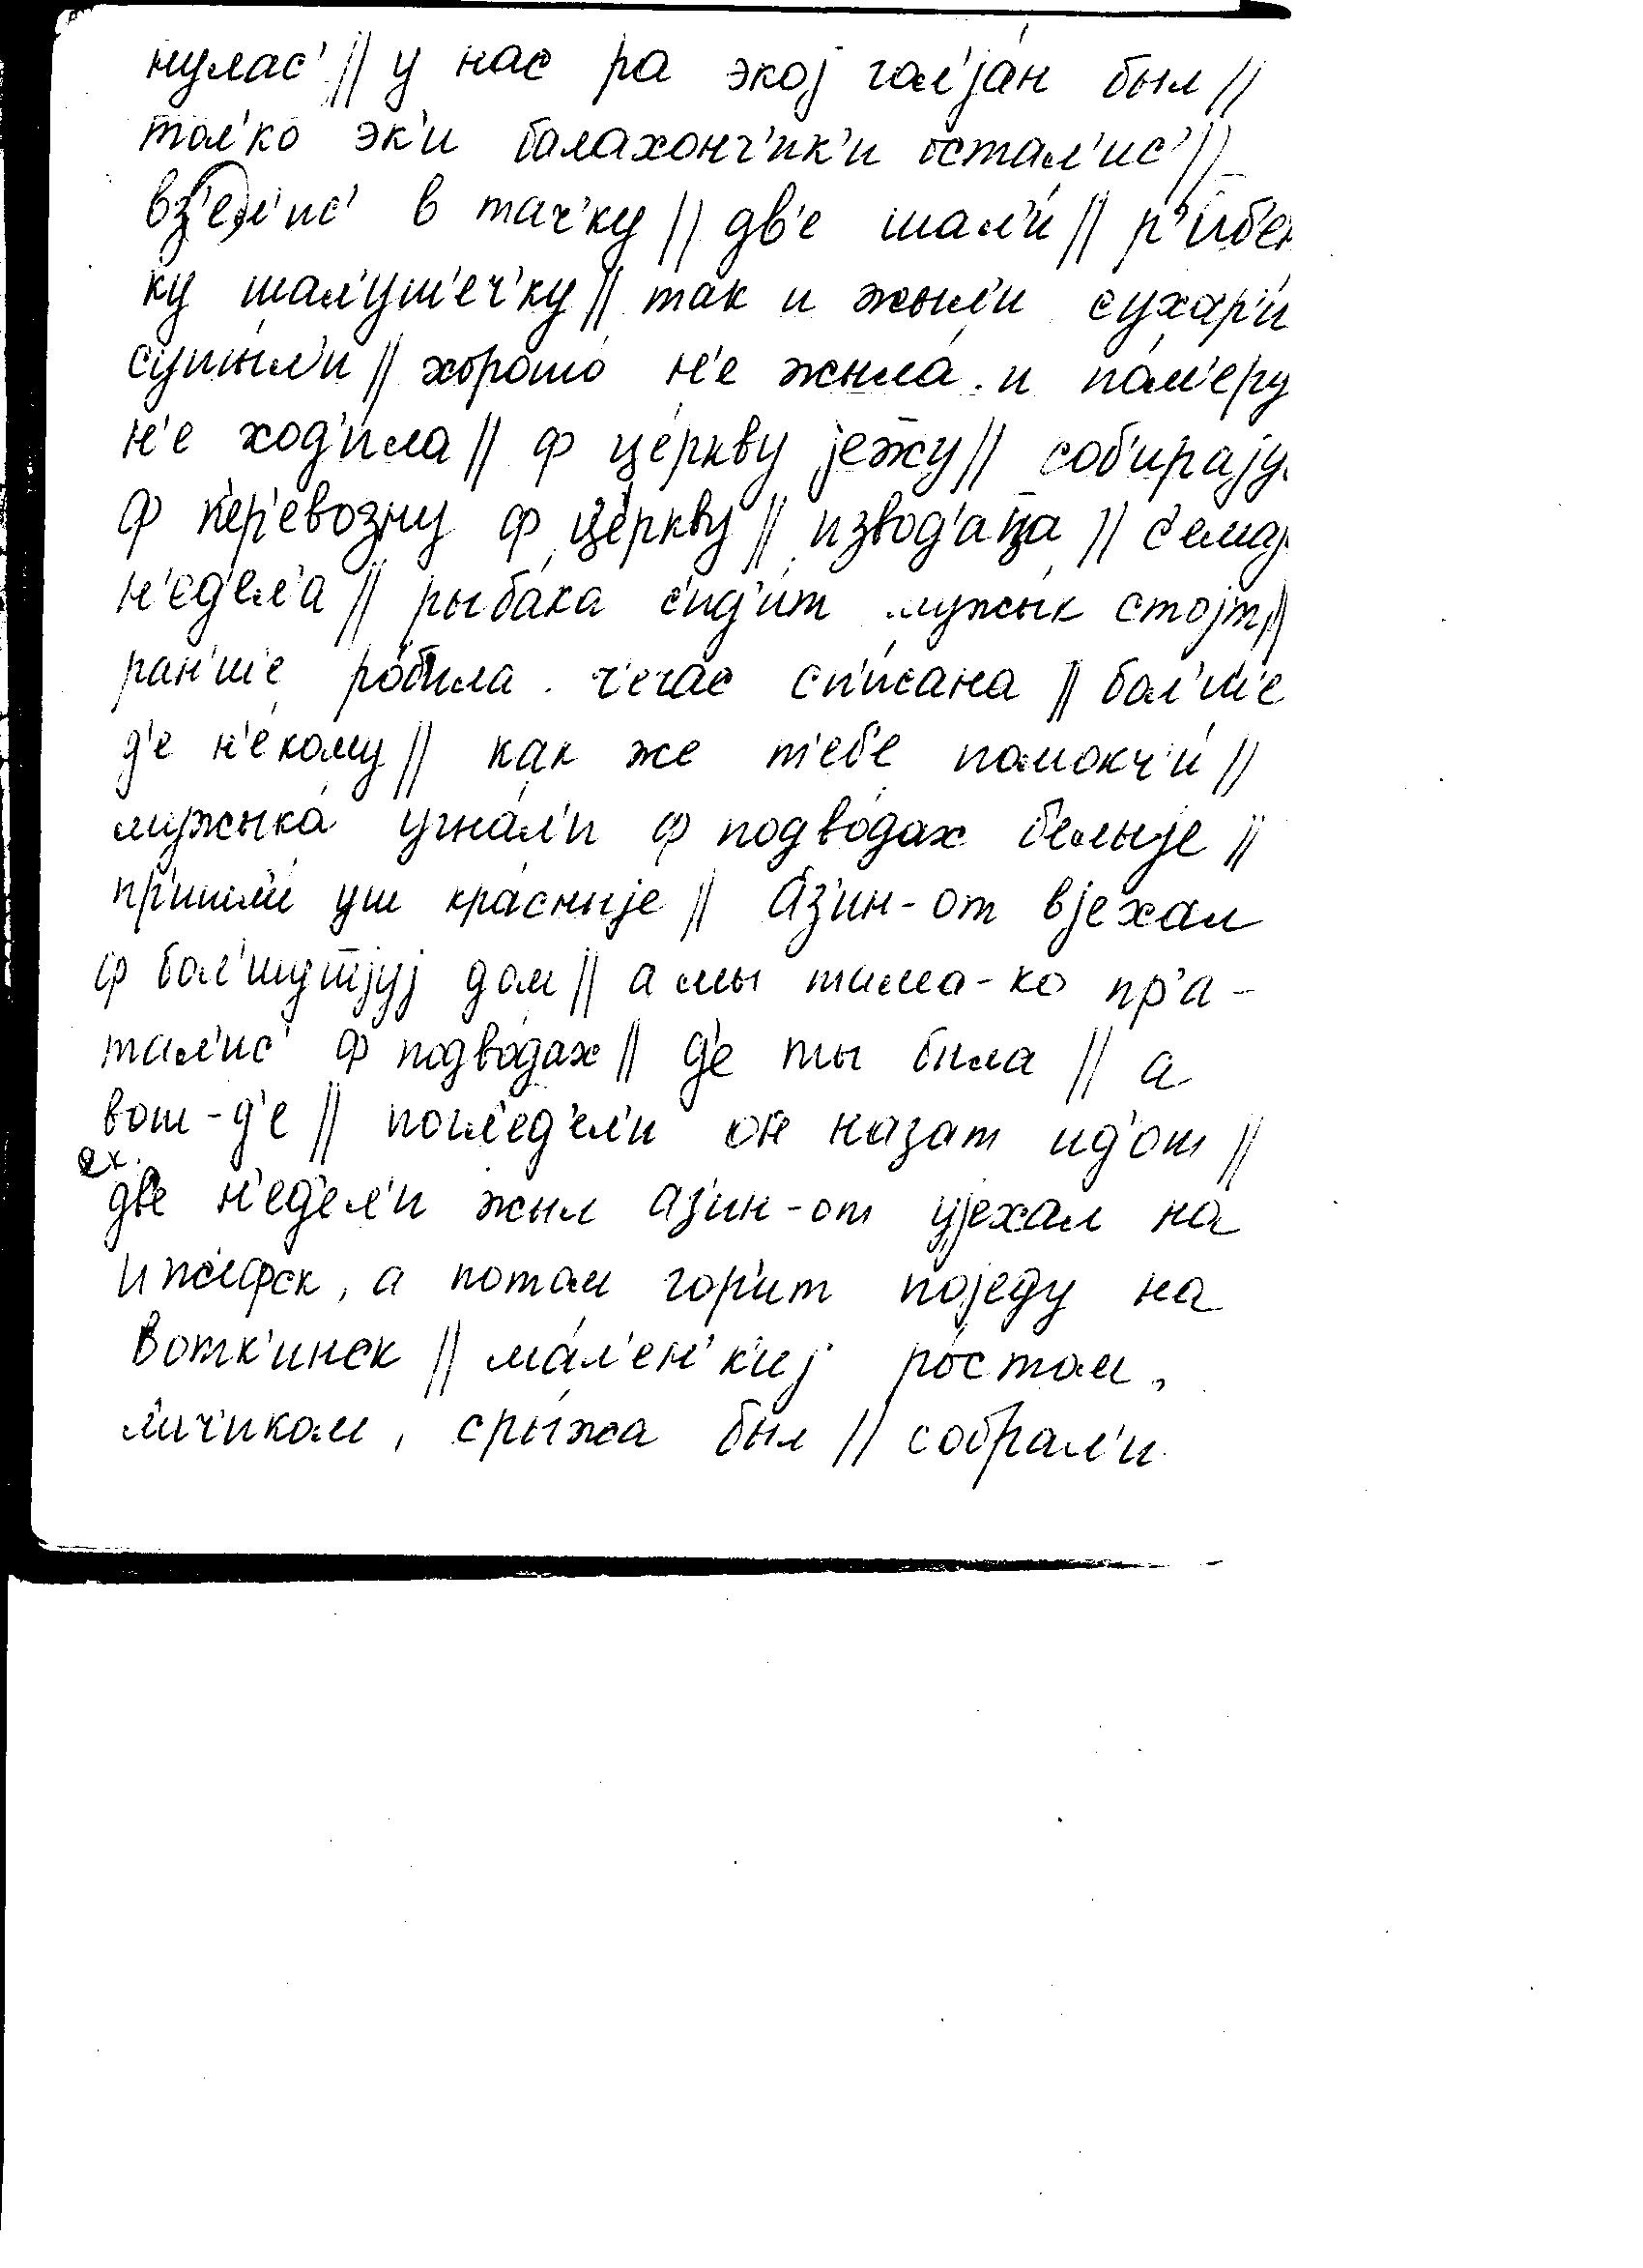 нулас' // у нас ра экој гол'ја́н был //
тол'ко эк'и балахонч'ик'и остал'ис' //
вз'ел'ис' в тач'ку // дв'е шал'и́ // р'иб'ен
ку шал'уш'еч'ку // так и жыл'и сухар'и́
сушы́л'и // хорошо́ н'е жыла́ . и па́м'еру
н'е ход'и́ла // ф це́ркву је́жжу // соб'ира́ју
ф п'ер'евозну ф це́ркву // извод'ацца // с'ема
н'ед'ел'а // рыба́ка с'ид'и́т мужы́к стојт //
ран'ш'е ро́била . ч'ечас сп'и́сана // бол'ш'е
д'е н'е́кому // как же т'еб'е помокч'и́ //
мужыка́ угна́л'и ф подво́дах б'елыје //
пр'ишл'и́ уш кра́сныје // а́з'ин-от вјехал
ф бол'шуттјуј дом // а мы тима-ко пр'а-
тал'ис' ф подво́дах // д'е ты была // а
вот-д'е // погл'ед'ел'и он назат ид'от //
ех.
дв'е н'ед'ел'и жыл аз'ин-от ујехал на
ижефск, а потом гор'ит поједу на
вотк'инск // ма́л'ен'к'иј ро́стом,
л'ич'иком, сры́жа был // собрал'и